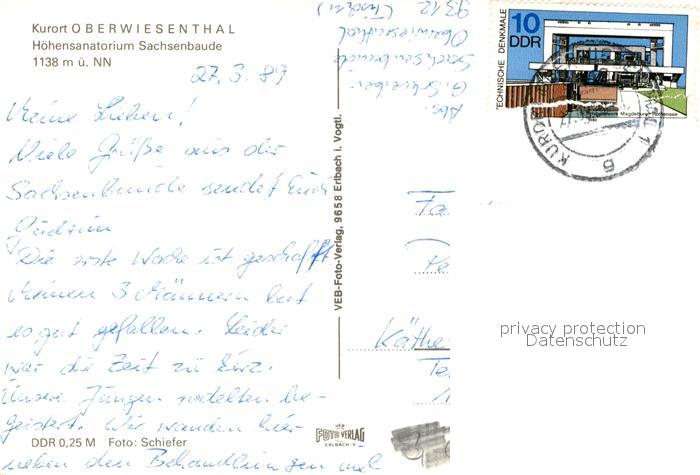 Kurort OBERWIESENTHAL
Höhensanatorium Sachsenbaude
1138 m ü. NN
27.3.89
Meine Lieben!
Viele Grüße aus der
Sachsenbaude sendet Euch
Gudrun
Die erste Woche ist geschafft
Meinen 3 Männern hat
es gut gefallen. Leider
war die Zeit zu kurz.
Unsere Jungen rodelten be-
geistert. Wir wandern hier
neben den Behandlungen viel
DDR 0,25 M Foto: Schiefer
VEB-Foto-Verlag, 9658 Erlbach i. Vogtl.
VEB
FOTO VERLAG
ERLBACH/V.
Abs.
Sachsenbaude
Oberwiesenthal
9312
TECHNISCHE DENKMALE
10
DDR
Magdeburg-Rothensee
Fa
Käthe
privacy protection
Datenschutz